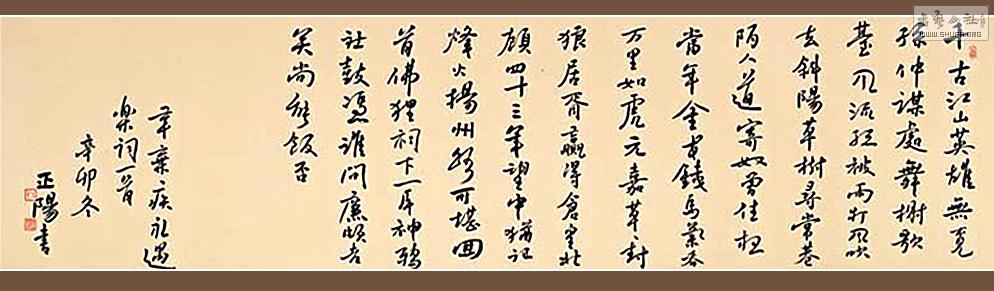 千古江山英雄無覓
孫仲謀處舞榭歌
臺風流總被雨打風吹
去斜陽草樹尋常巷
陌人道寄奴曾住想
當年金戈鐵馬氣吞
万里如虎元嘉草封
狼居胥贏得倉皇北
顧四十三年望中猶記
烽火揚州路可堪回
首佛狸祠下一片神鴉
社鼓憑誰問廉頗老
矣尚能飯否
辛棄疾永遇
樂詞一首
辛卯冬
正陽書
WWW.SHUFA.ORG